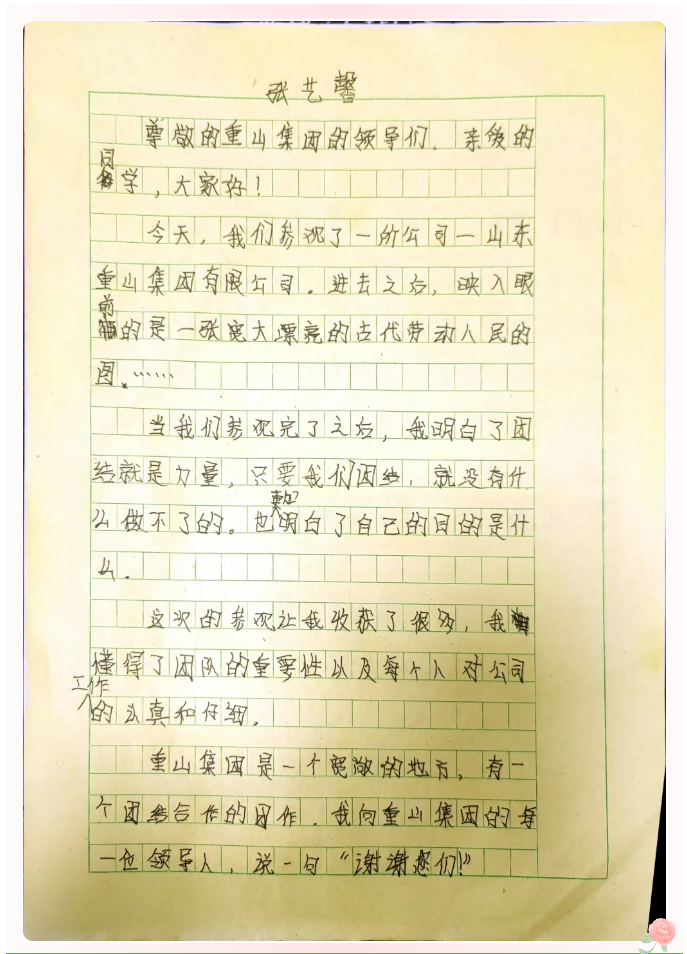 张艺馨
尊敬的重山集团的领导们、亲爱的
同学，大家好！
今天，我们参观了一所公司一山东
重山集团有限公司。进去之后，映入眼
前的是一张宽大漂亮的古代劳动人民的
图。……
当我们参观完了之后，我明白了团
结就是力量，只要我们团结，就没有什
么做不了的。也更加明白了自己的目的是什
么。
这次的参观让我收获了很多，我
懂得了团队的重要性以及每个人对公司
工作的认真和仔细。
重山集团是一个宽敞的地方，有一
个团结合作的团作。我向重山集团的每
一位领导人，说一句“谢谢您们！”